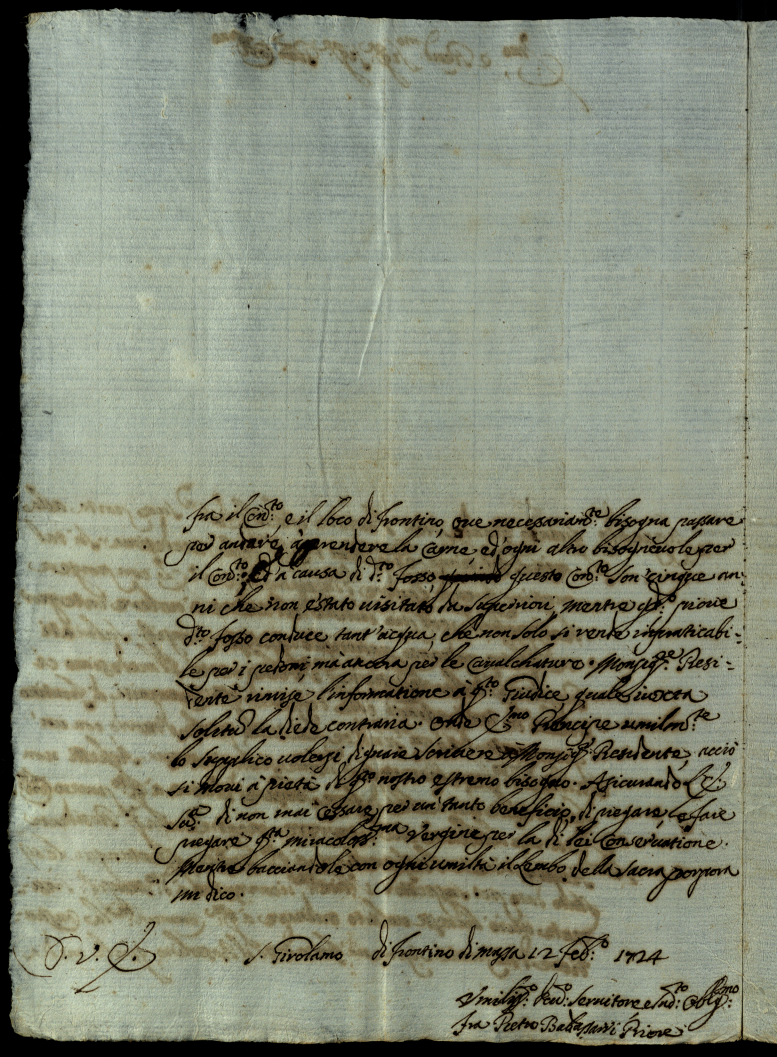 fra il Con.to, e il loco di frontino, que necessariam.te bisogna passare
per andare à prendere la Carne, ed'ogni altro bisognieuole per
il Con.to. Ed'à causa di d.to fosso questo Con.to son cinque an-
ni che non è stato uisitato da superiori, mentre q.do pioue
d.to fosso conduce tant'acqua, che non solo si rende impraticabi-
le per i pedoni mà ancora per le caualchature. Monsig.re Presi-
dente rimise l'informatione à q.to Giudice quale iuxta
solitū la diede contraria. Onde Principe umilm.te
lo supplico uolersi dignare scriuere à Monsig.r Presidente, acciò
si moui à pietà di q.to nostro estremo bisogno. Assicurando
di non mai cessare per un tanto beneficio, di pregare, e fare
pregare q.ta miracolos.ma Vergine per la di lei Conseruatione.
Mentre bacciandole con ogni umiltà il Lembo della sacra porpora
mi dico.
D. V. E. S. Girolamo di frontino di massa 12 Feb.o 1724
Vmiliss.o deu.o seruitore e sud.to Oblig.mo
fra Pietro Baldassarri Priore